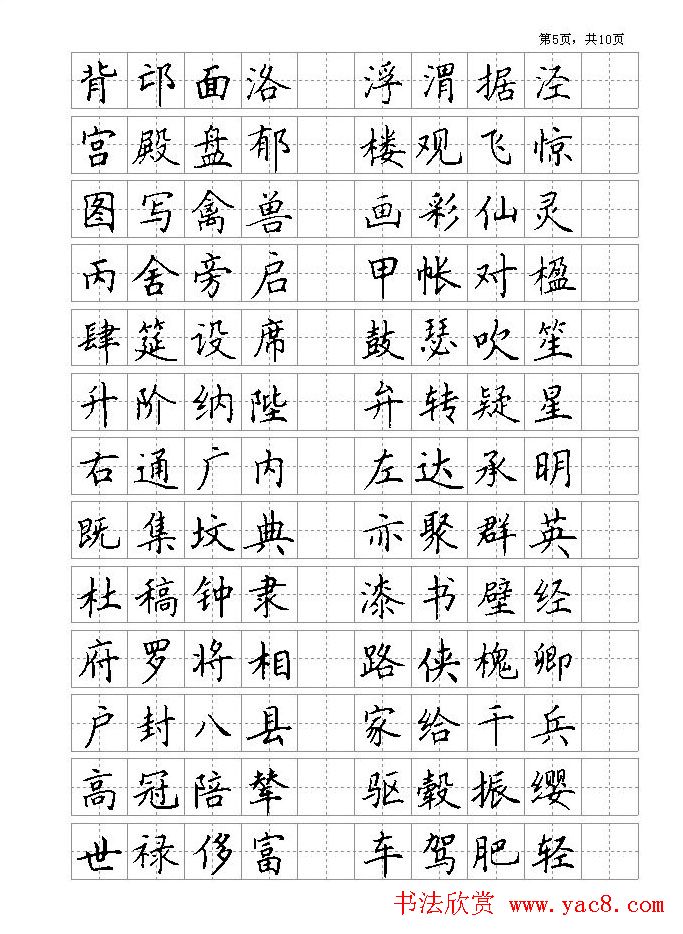 第5页，共10页
背邙面洛 浮渭据泾
宫殿盘郁 楼观飞惊
图写禽兽 画彩仙灵
丙舍旁启 甲帐对楹
肆筵设席 鼓瑟吹笙
升阶纳陛 弁转疑星
右通广内 左达承明
既集坟典 亦聚群英
杜稿钟隶 漆书壁经
府罗将相 路侠槐卿
户封八县 家给千兵
高冠陪辇 驱毂振缨
世禄侈富 车驾肥轻
书法欣赏 www.yac8.com